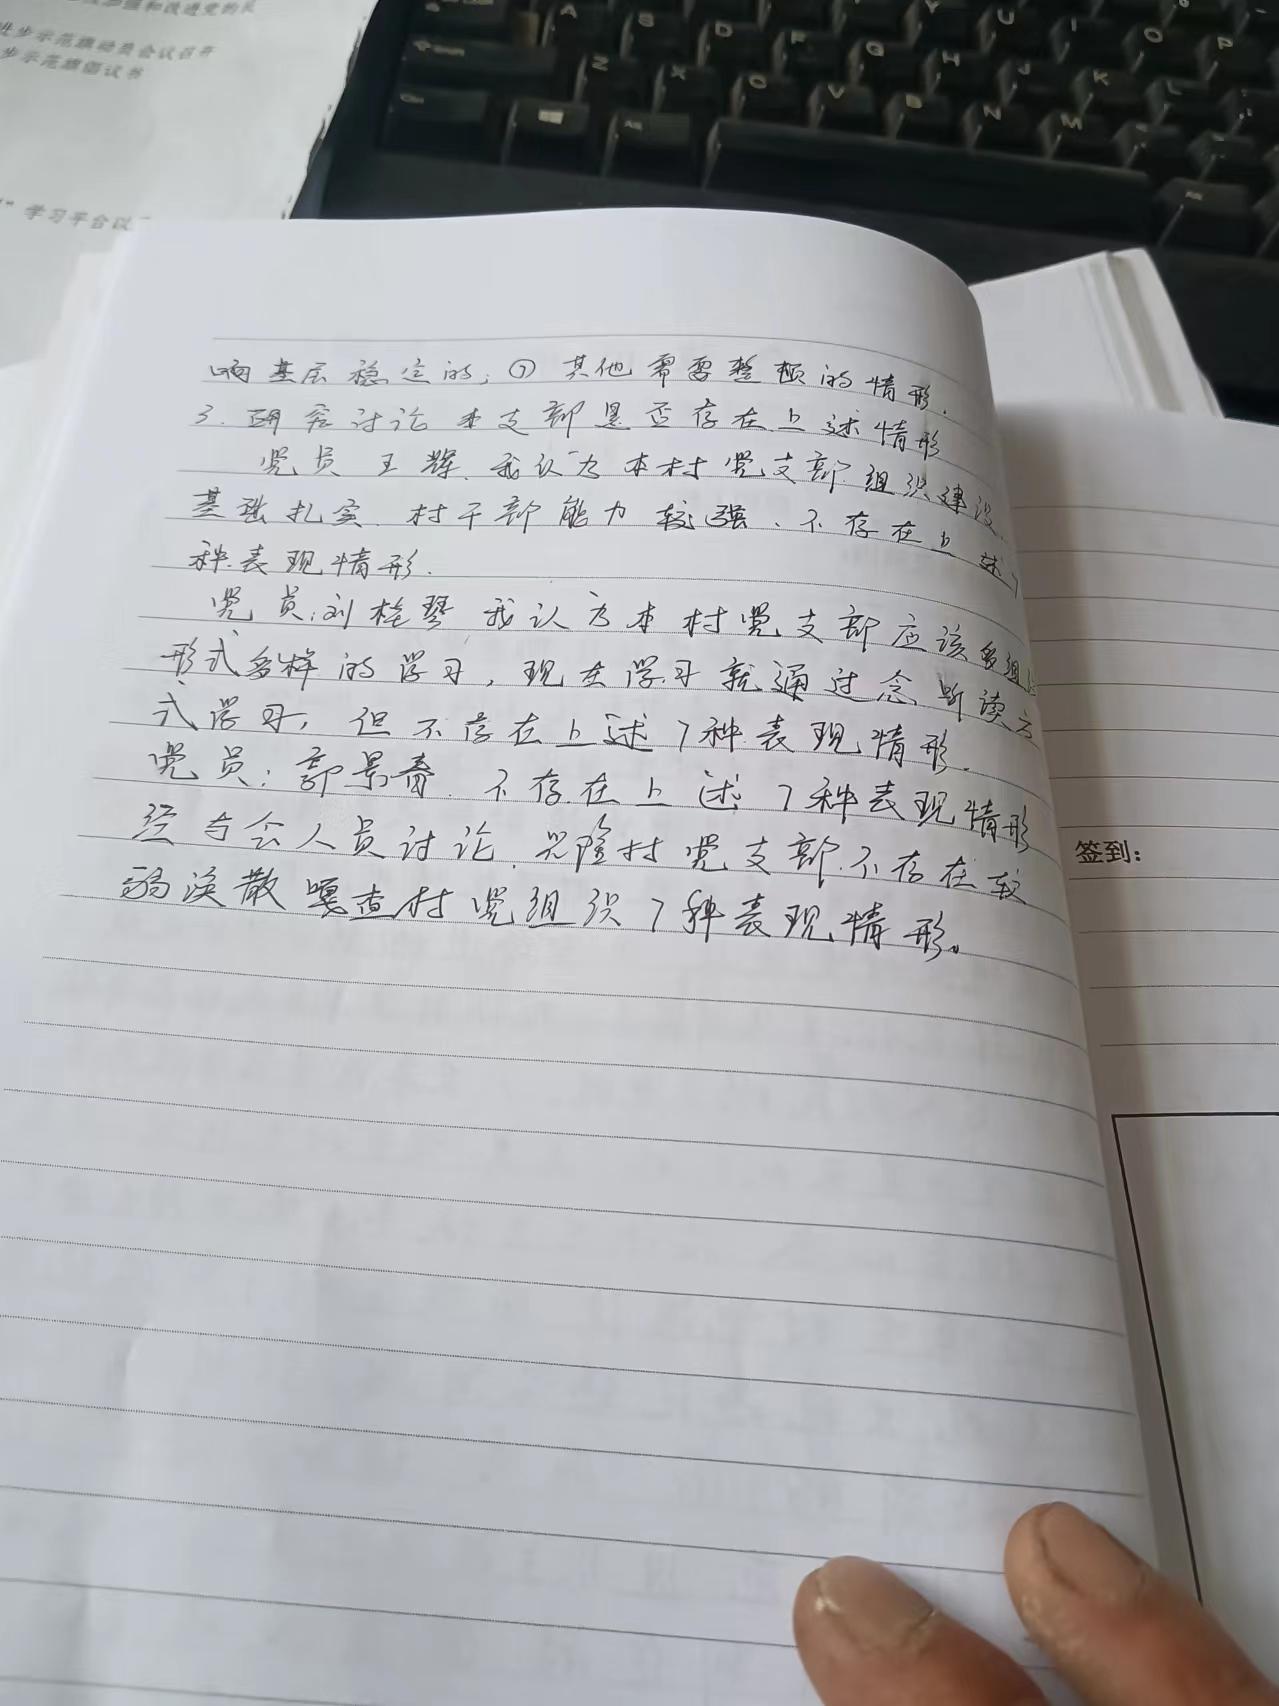 进步示范旗动员会议召开
步示范旗倡议书
学习平台以
响基层稳定的；⑦其他需要整顿的情形．
3．研究讨论本支部是否存在上述情形
党员王辉．我认为本村党支部组织建设
基础扎实．村干部能力较强、不存在上述7
种表现情形．
党员：刘桂琴 我认为本村党支部应该多组织
形式多样的学习，现在学习就通过念听读方
式学习，但不存在上述7种表现情形．
党员：郭景春．不存在上述7种表现情形
经与会人员讨论．兴隆村党支部不存在软
弱涣散嘎查村党组织7种表现情形。
签到：